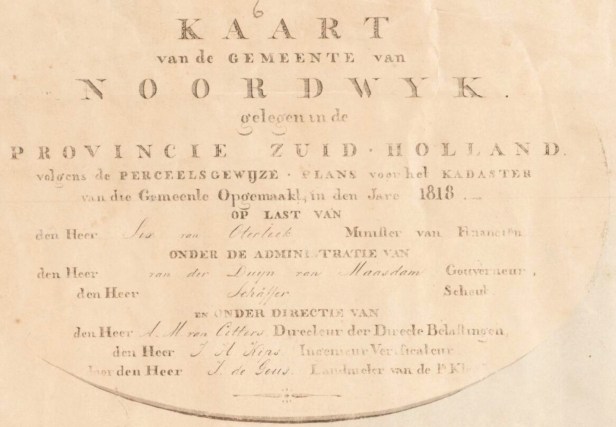 6
KAART
van de GEMEENTE van
NOORDWYK.
gelegen in de
PROVINCIE ZUID-HOLLAND.
volgens de PERCEELSGEWIJZE PLANS voor het KADASTER
van die Gemeente Opgemaakt, in den Jare 1818.
OP LAST VAN
den Heer Six van Oterleek Minister van Financien
ONDER DE ADMINISTRATIE VAN
den Heer van der Duyn van Maasdam Gouverneur,
den Heer Schäffer Schout
EN ONDER DIRECTIE VAN
den Heer A. M. van Citters Directeur der Directe Belastingen,
den Heer Ingenieur Verificateur
door den Heer J. de Geus. Landmeter van de 1e Kl